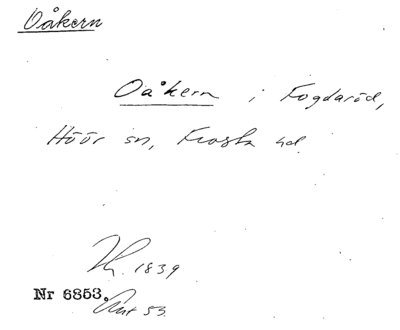 Oåkern
Oåkern i Fogdaröd,
Höör sn, Frosta hd
1839
Nr 6853.
53.